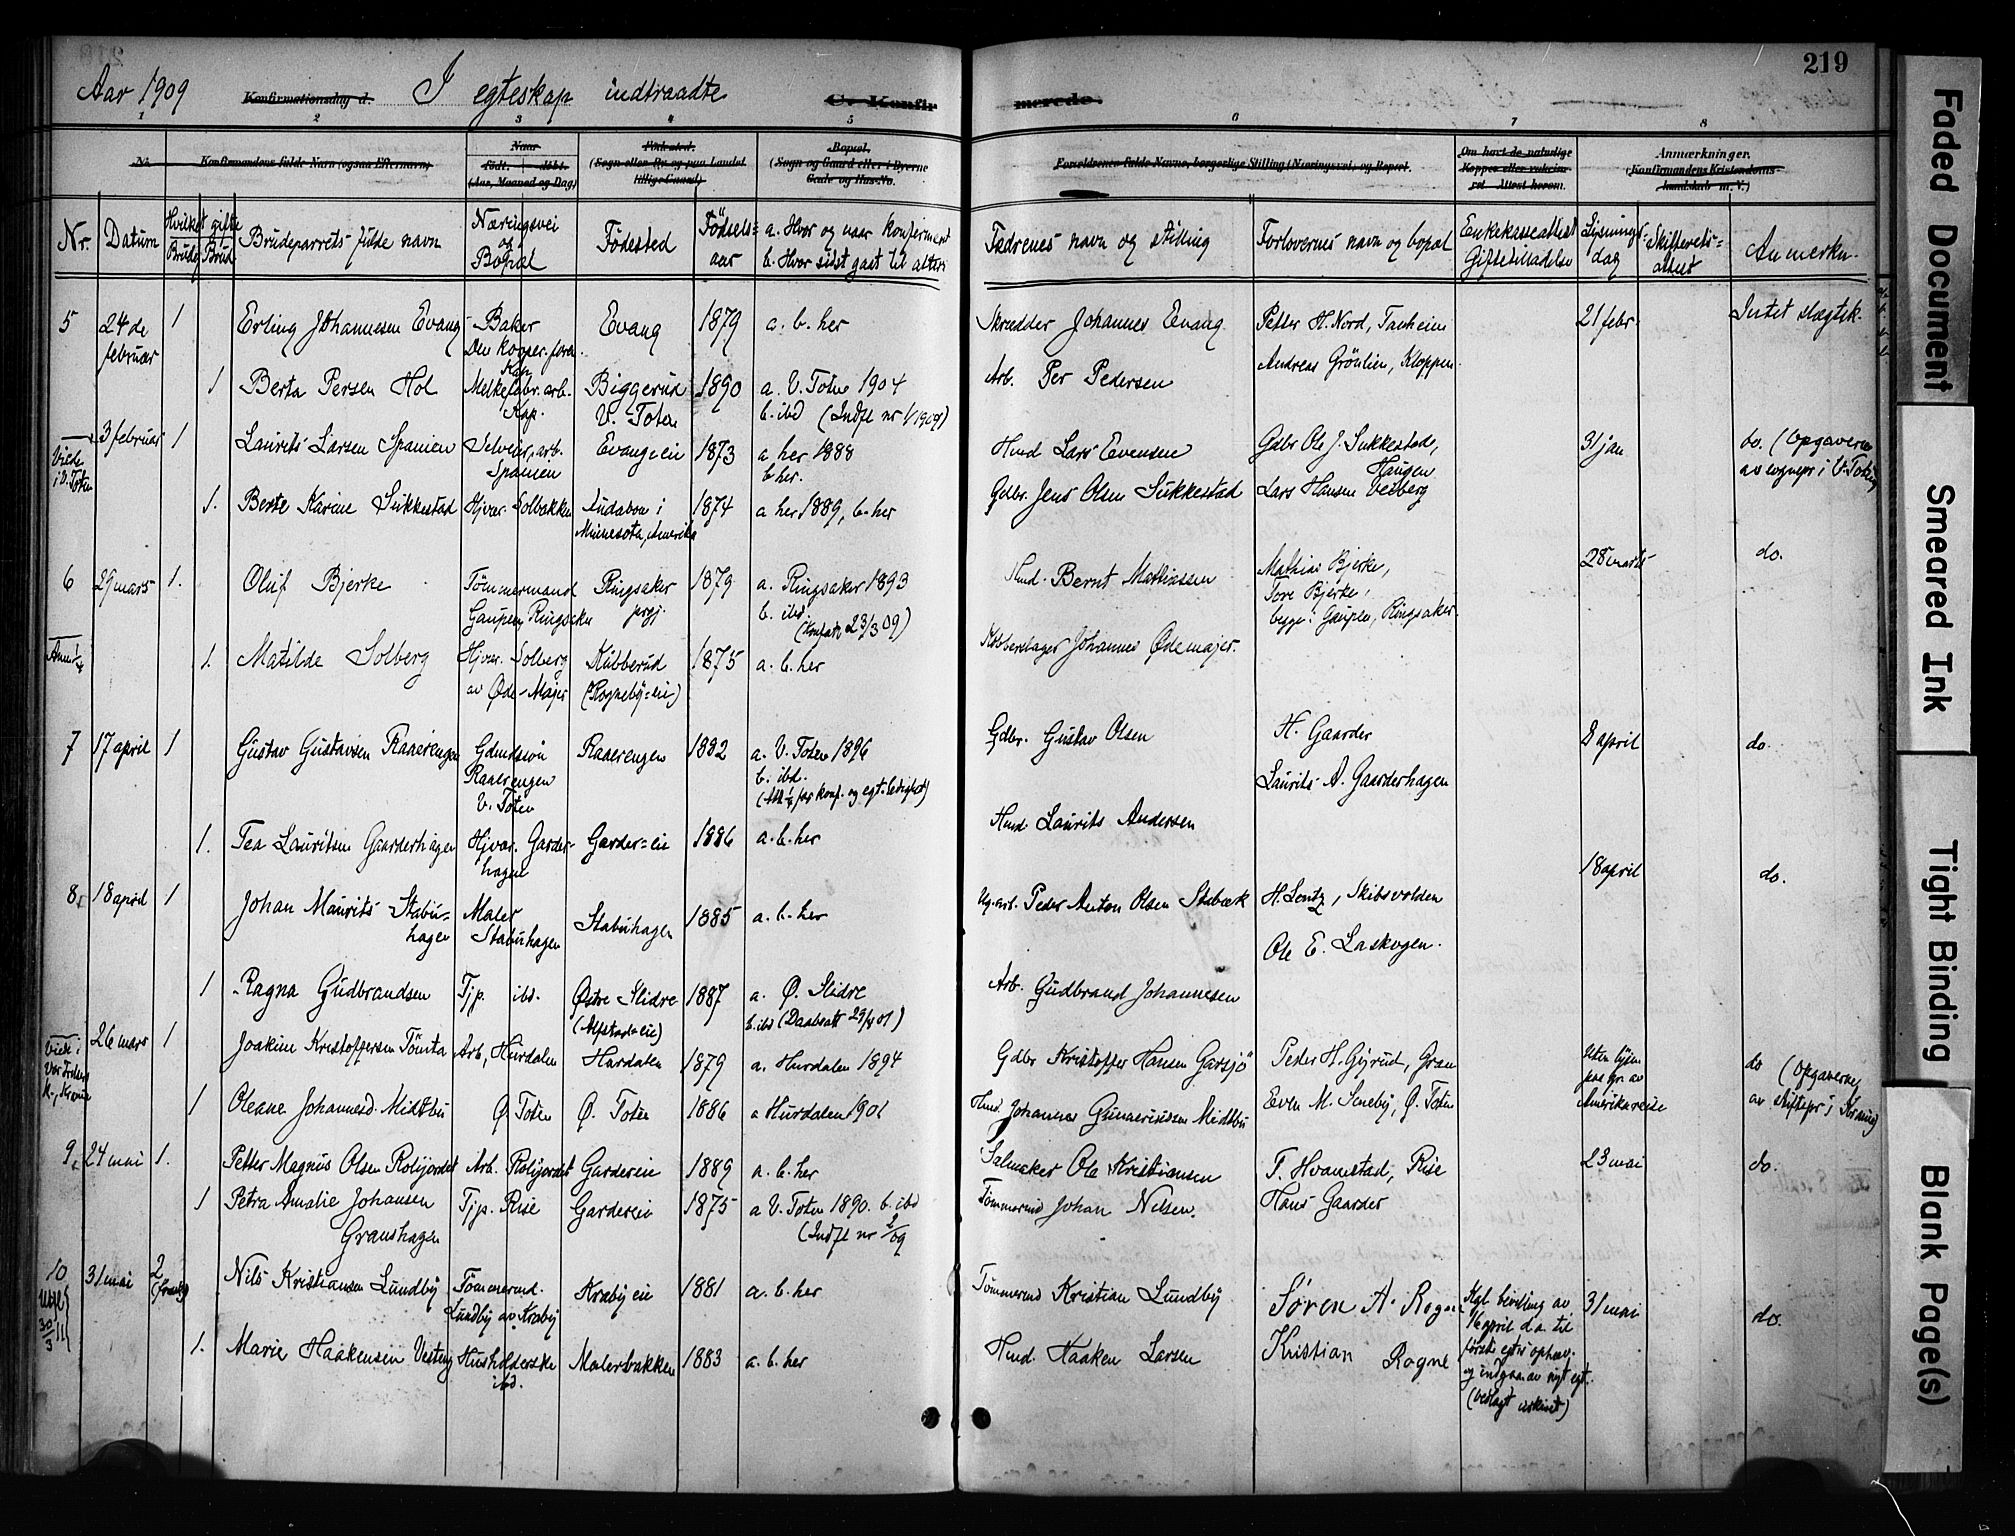 219
Aar 1909 Konfirmationsdag d. I egteskap indtraadte C. Konfirmerede.
1 2 3 4 5 6 7 8
No. Konfirmandens fulde Navn (ogsaa Efternavn) Naar født. døbt. (Aar, Maaned og Dag) Fødested. (Sogn eller By og paa Landet tillige Gaard) Bopæl. (Sogn og Gaard eller i Byerne Gade og Hus-No. Forældrenes fulde Navne, borgerlige Stilling (Næringsvei) og Bopæl. Om havt de naturlige Kopper eller vakcineret. Attest herom. Anmærkninger. (Konfirmandens Kristendomskundskab m. V.)
Nr. Datum Hvilket gifte Brudg. Brud Brudeparrets fulde navn Næringsvei og Bopæl Fødested Fødsels=aar a. Hvor og naar konfirmert b. Hvor sidst gaat til alters Fædrenes navn og stilling Forlovernes navn og bopæl Enkekasseattest Giftetilladelse Lysnings-dag Skifterets=attest Anmerkn.
5 24de februar 1 Erling Johannesen Evang Baker Evang 1879 a. b. her Skrædder Johannes Evang Petter H. Nord, Tanheim 21 febr. Intet slægtsk.
Den kooper. foren. Kap Andreas Grönlien, Kloppen
1 Berta Persen Hol Melkefabr. arb. Kap. Biggerud V. Toten 1890 a. V. Toten 1904 Arb. Per Pedersen
b. ibd (Indfl nr 1/1909)
Viede i V. Toten 3 februar 1 Laurits Larsen Spanien Selveier, arb. Spanien Evang=eie 1873 a her 1888 b her. Hmd Lars Evensen Gdbr Ole J. Sukkestad, Haugen 31 jan do. (Opgaverne av sognepr i V. Toten)
1. Berte Karine Sukkestad Hjvær. Solbakken Audabon i Minnesota, Amerika 1874 a her 1889, b. her Gdbr. Jens Olsen Sukkestad Lars Hansen Veiberg
6 29 mars 1. Oluf Bjerke Tömmermand Gaupen Ringsaker Ringsaker prgj. 1879 a. Ringsaker 1893 b. ibd. Hmd. Bernt Mathiassen Mathias Bjerke, 28 marts do.
(23/3 09) Tore Bjerke, begge: Gaupen, Ringsaker
1. Matilde Solberg Hjvær. Solberg av Øde-Majer Kubberud (Rognebÿ=eie) 1875 a. b. her Kobberslager Johannes Ødemajer.
7 17 april 1 Gustav Gustavsen Raaerengen Gdmdssøn Raaerengen V. Toten Raaerengen 1882 a. V. Toten 1896 b. ibd. Gdbr. Gustav Olsen H. Gaarder 8 april do.
(for konf. og egt. ledighet) Laurits A. Gaarderhagen
1. Tea Lauritsen Gaarderhagen Hjvær. Garder-hagen Garder=eie 1886 a. b. her Hmd. Laurits Andersen
8. 18 april 1 Johan Maurits Stabu=hagen Maler Stabuhagen Stabuhagen 1885 a. b. her Peder Anton Olsen Stabæk H. Lentz, Skibsvolden 18 april do.
Ole E. Laskogen.
1 Ragna Gudbrandsen Tjp. ibd. Østre Slidre (Alfstad=eie) 1887 a. Ø. Slidre Arb. Gudbrand Johannesen
b. ibd
26 mars 1 Joakim Kristoffersen Tömta Arb, Hurdalen Hurdalen 1879 a. Hurdalen 1894 Gdbr Kristoffer Hansen Garsjö Peder H. Gijrud, Gran Uten lysn. paa gr. av Amerikareise do (Opgaverne av stiftspr. i
1 Oleane Johannesd. Midtbu Ø Toten Ø. Toten 1886 a Hurdalen 1901 Hmd. Johannes Gunerius Midtbu Even M. Seneby, Ø. Toten
9. 24 mai 1. Petter Magnus Olsen Rolijordet Arb. Rolijordet Gardereie 1889 a. b. her Salmaker Ole Kristiansen T. Hvamstad, Rise 23 mai do.
1 Petra Amalie Johansen Granshagen Tjp. Rise Gardereie 1875 a V. Toten 1890. b. ibd Tømmermd Johan Nilsen. Hans Gaarder
(Indfl nr 2/09
10 31 mai 2 Nils Kristiansen Lundby Tömmermd. Lundbÿ av Krabÿ Krabÿ eie 1881 a. b. her Tømmermd Kristian Lundby Søren A. Rogne Kgl. bevilling av 16 april d. a. til første egts ophæv. og indgaa av nyt egt. 31 mai do.
1. Marie Haakensen Husholderske ibd. Malerbakken 1883 a. b. her Hmd. Haaken Larsen Kristian Rogne
Faded Document
Smeared Ink
Tight Binding
Blank Page(s)